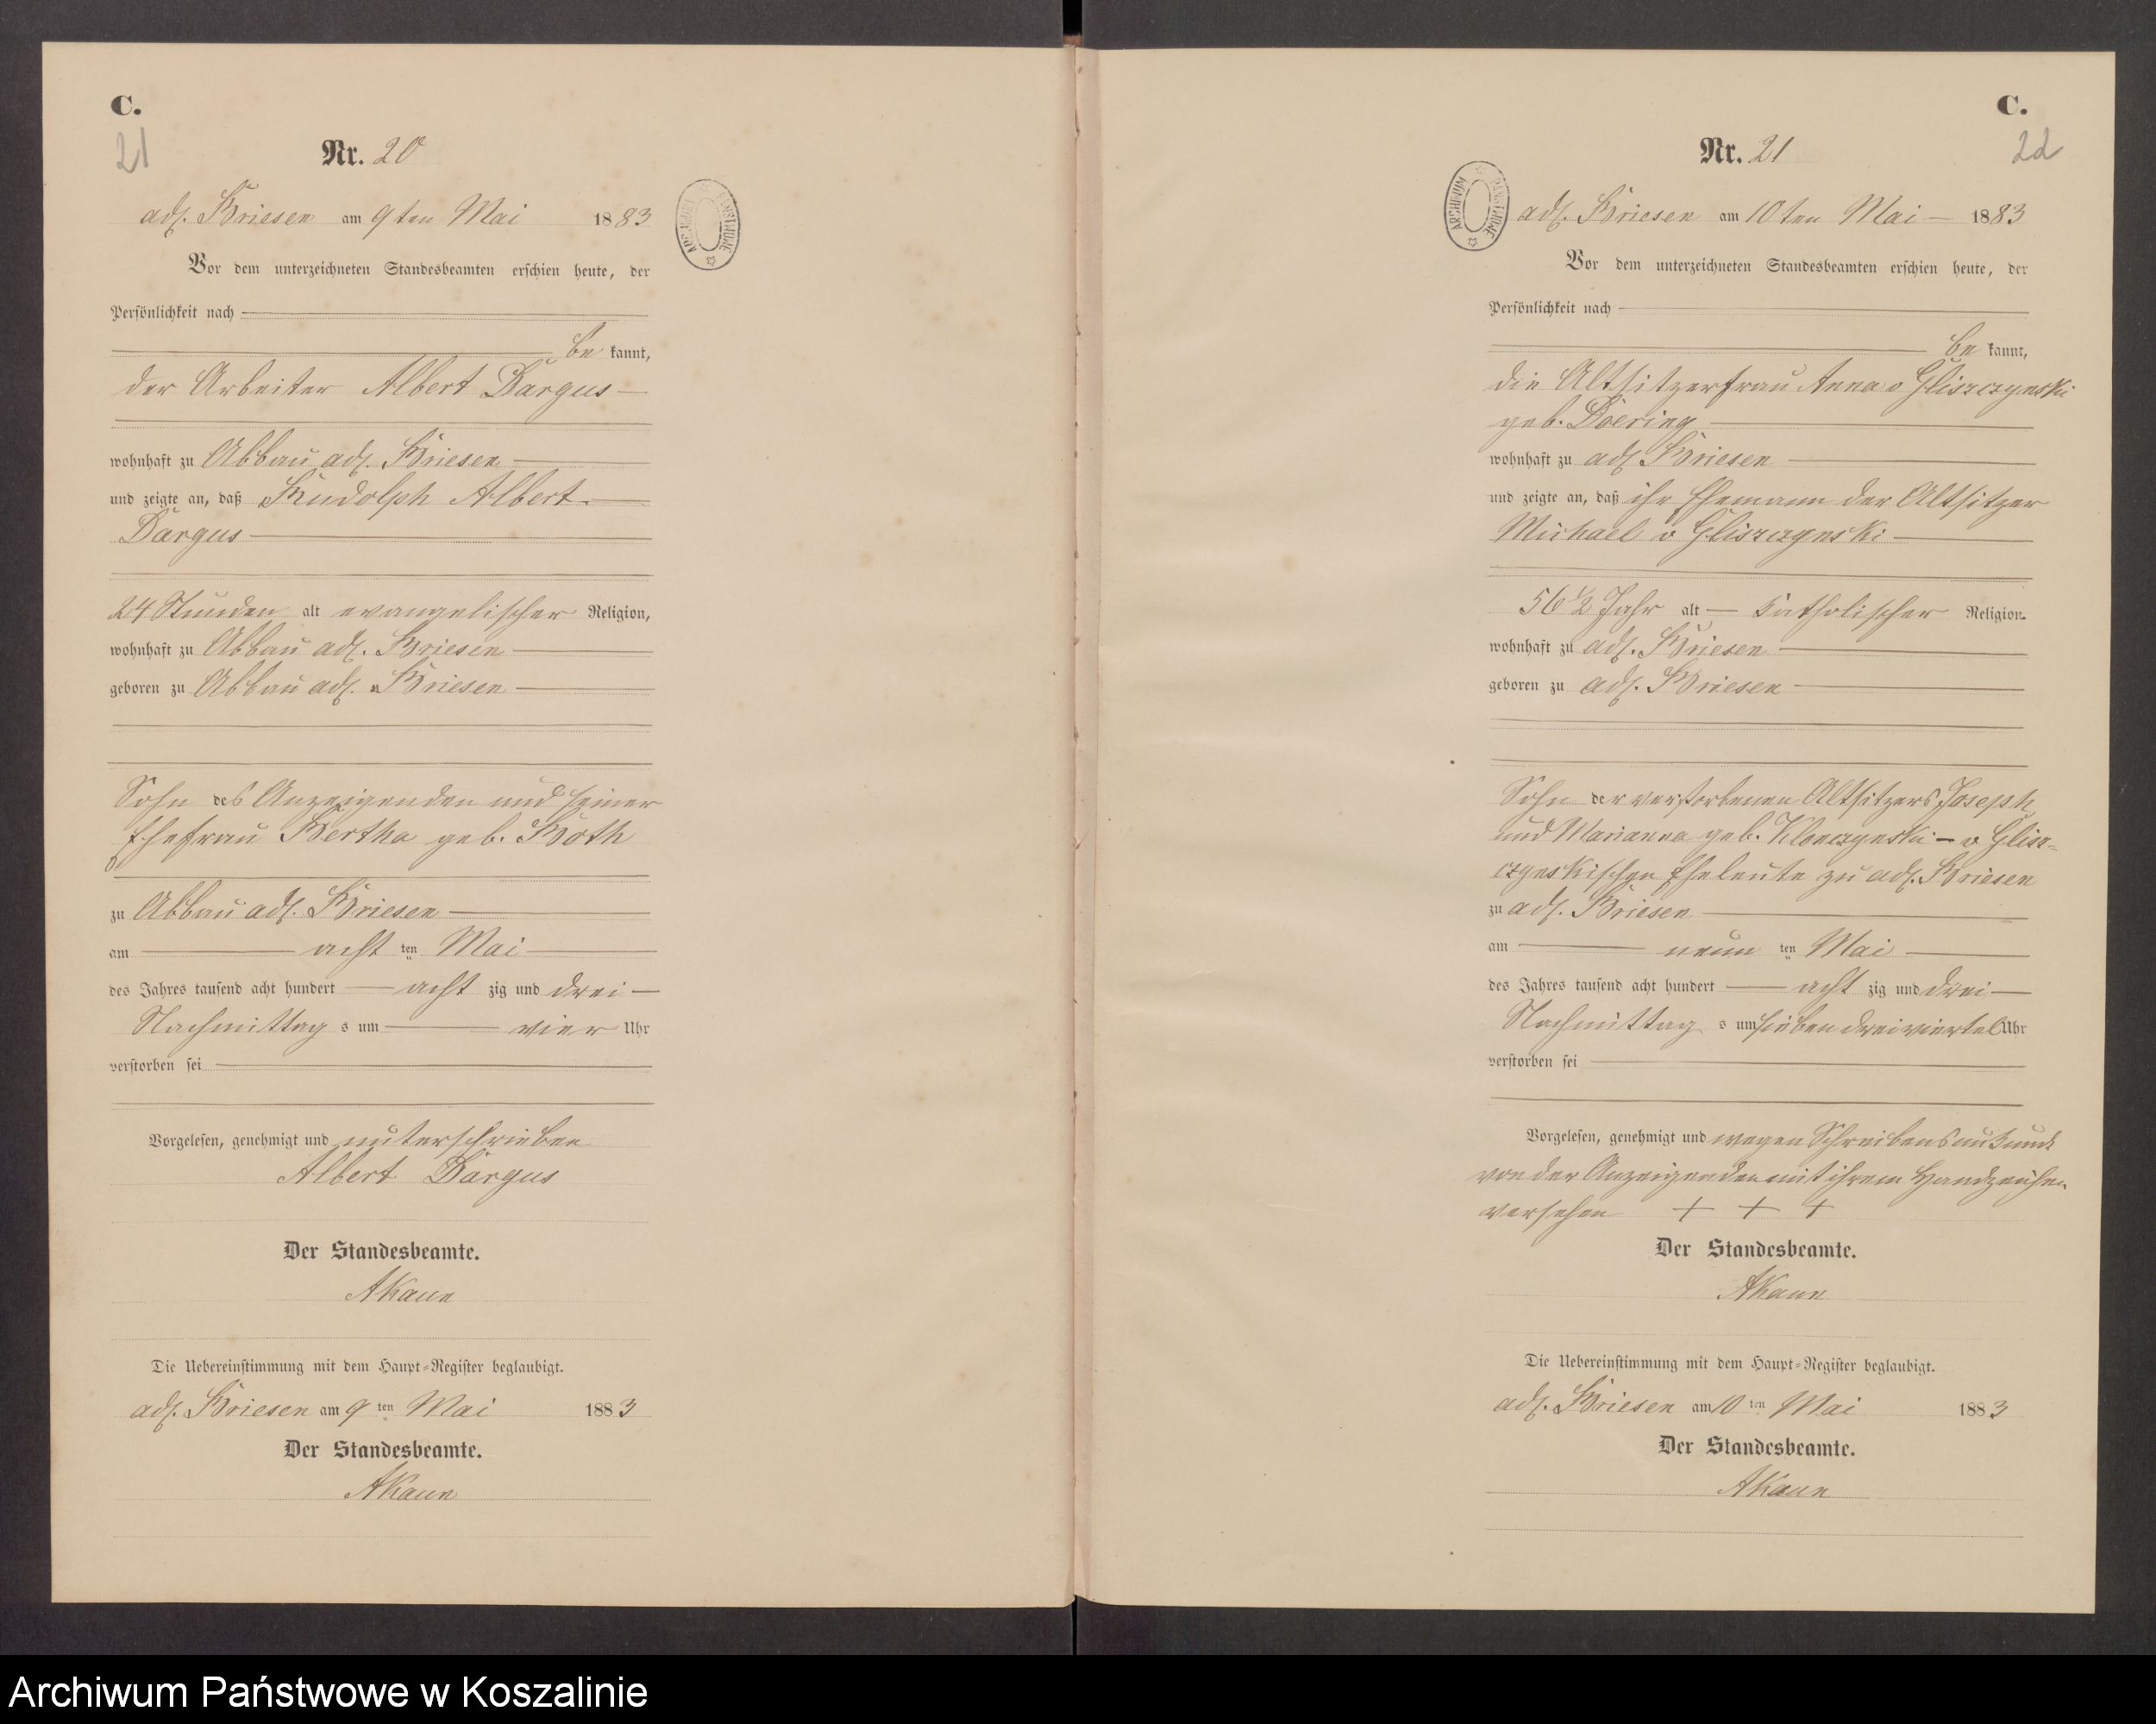 C.
21
Nr. 20
adl. Briesen am 9ten Mai 1883
Vor dem unterzeichneten Standesbeamten erschien heute, der
Persönlichkeit nach
be kannt,
der Arbeiter Albert Dargus
wohnhaft zu Abbau adl. Briesen
und zeigte an, daß Rudolph Albert
Dargus
24 Stunden alt evangelischer Religion,
wohnhaft zu Abbau adl. Briesen
geboren zu Abbau adl. Briesen
Sohn des Anzeigenden und seiner
Ehefrau Bertha geb. Both
zu Abbau adl. Briesen
am acht ten Mai
des Jahres tausend acht hundert acht zig und drei
Nachmittag s um vier Uhr
verstorben sei
Vorgelesen, genehmigt und unterschrieben
Albert Dargus
Der Standesbeamte.
AKaun
Die Uebereinstimmung mit dem Haupt-Register beglaubigt.
adl. Briesen am 9 ten Mai 1883
Der Standesbeamte.
AKaun
ARCHIWUM PAŃSTWOWE
C.
22
Nr. 21
ARCHIWUM PAŃSTWOWE
adl. Briesen am 10ten Mai 1883
Vor dem unterzeichneten Standesbeamten erschien heute, der
Persönlichkeit nach
be kannt,
die Altsitzerfrau Anna v Gliszczynski
geb. Doering
wohnhaft zu adl. Briesen
und zeigte an, daß ihr Ehemann der Altsitzer
Michael v Gliszczynski
56 1/2 Jahr alt katholischer Religion
wohnhaft zu adl. Briesen
geboren zu adl. Briesen
Sohn der verstorbenen Altsitzers Joseph
und Marianna geb. Klonczynski - v Glisz-
czynskischen Eheleute zu adl. Briesen
zu adl. Briesen
am neun ten Mai
des Jahres tausend acht hundert acht zig und drei
Nachmittag s um sieben dreiviertel Uhr
verstorben sei
Vorgelesen, genehmigt und wegen Schreibensunkunde
von der Anzeigenden mit ihrem Handzeichen
versehen + + +
Der Standesbeamte.
AKaun
Die Uebereinstimmung mit dem Haupt-Register beglaubigt.
adl. Briesen am 10 ten Mai 1883
Der Standesbeamte.
AKaun
Archiwum Państwowe w Koszalinie